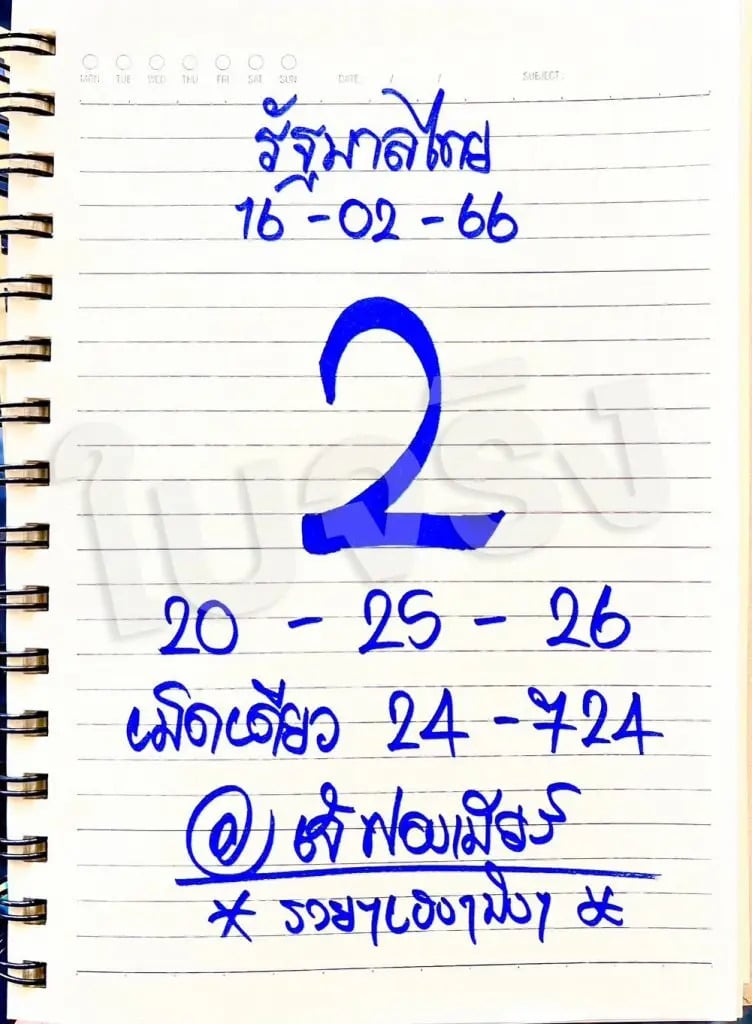 MON TUE WED THU FRI SAT SUN DATE: / / SUBJECT:
รัฐบาลไทย
16 - 02 - 66
2
ใบจริง
20 - 25 - 26
เม็ดเดียว 24 - 724
@ เจ้ฟองเบียร์
* รวยๆเฮงๆปังๆ *